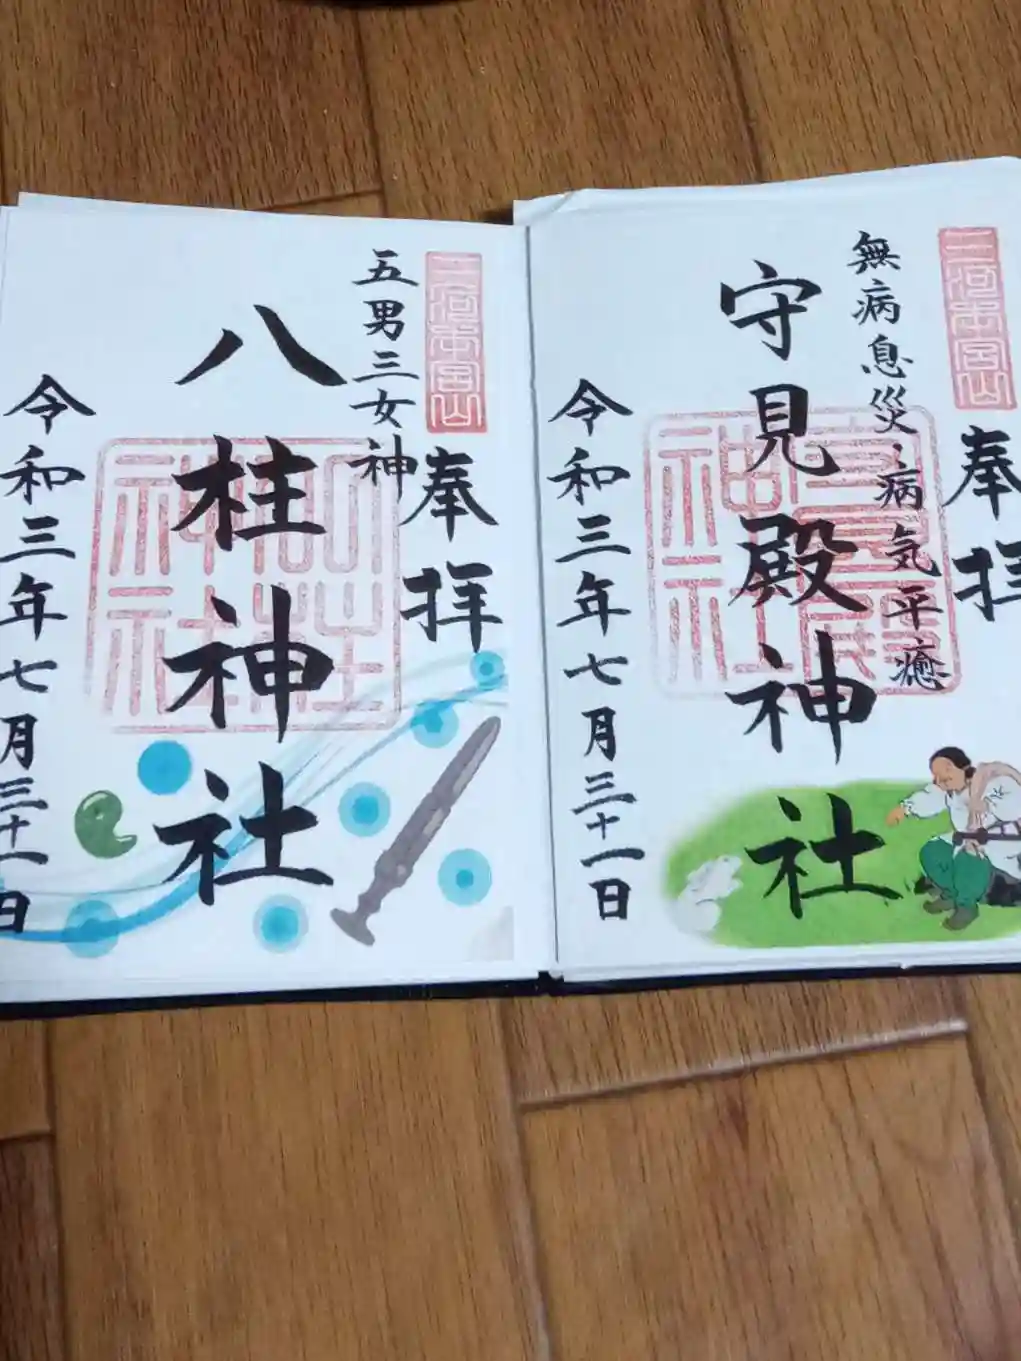 三河本宮山
奉拝
無病息災・病気平癒
守見殿神社
守見殿神社
令和三年七月三十一日
三河本宮山
奉拝
五男三女神
八柱神社
八柱神社
令和三年七月三十一日